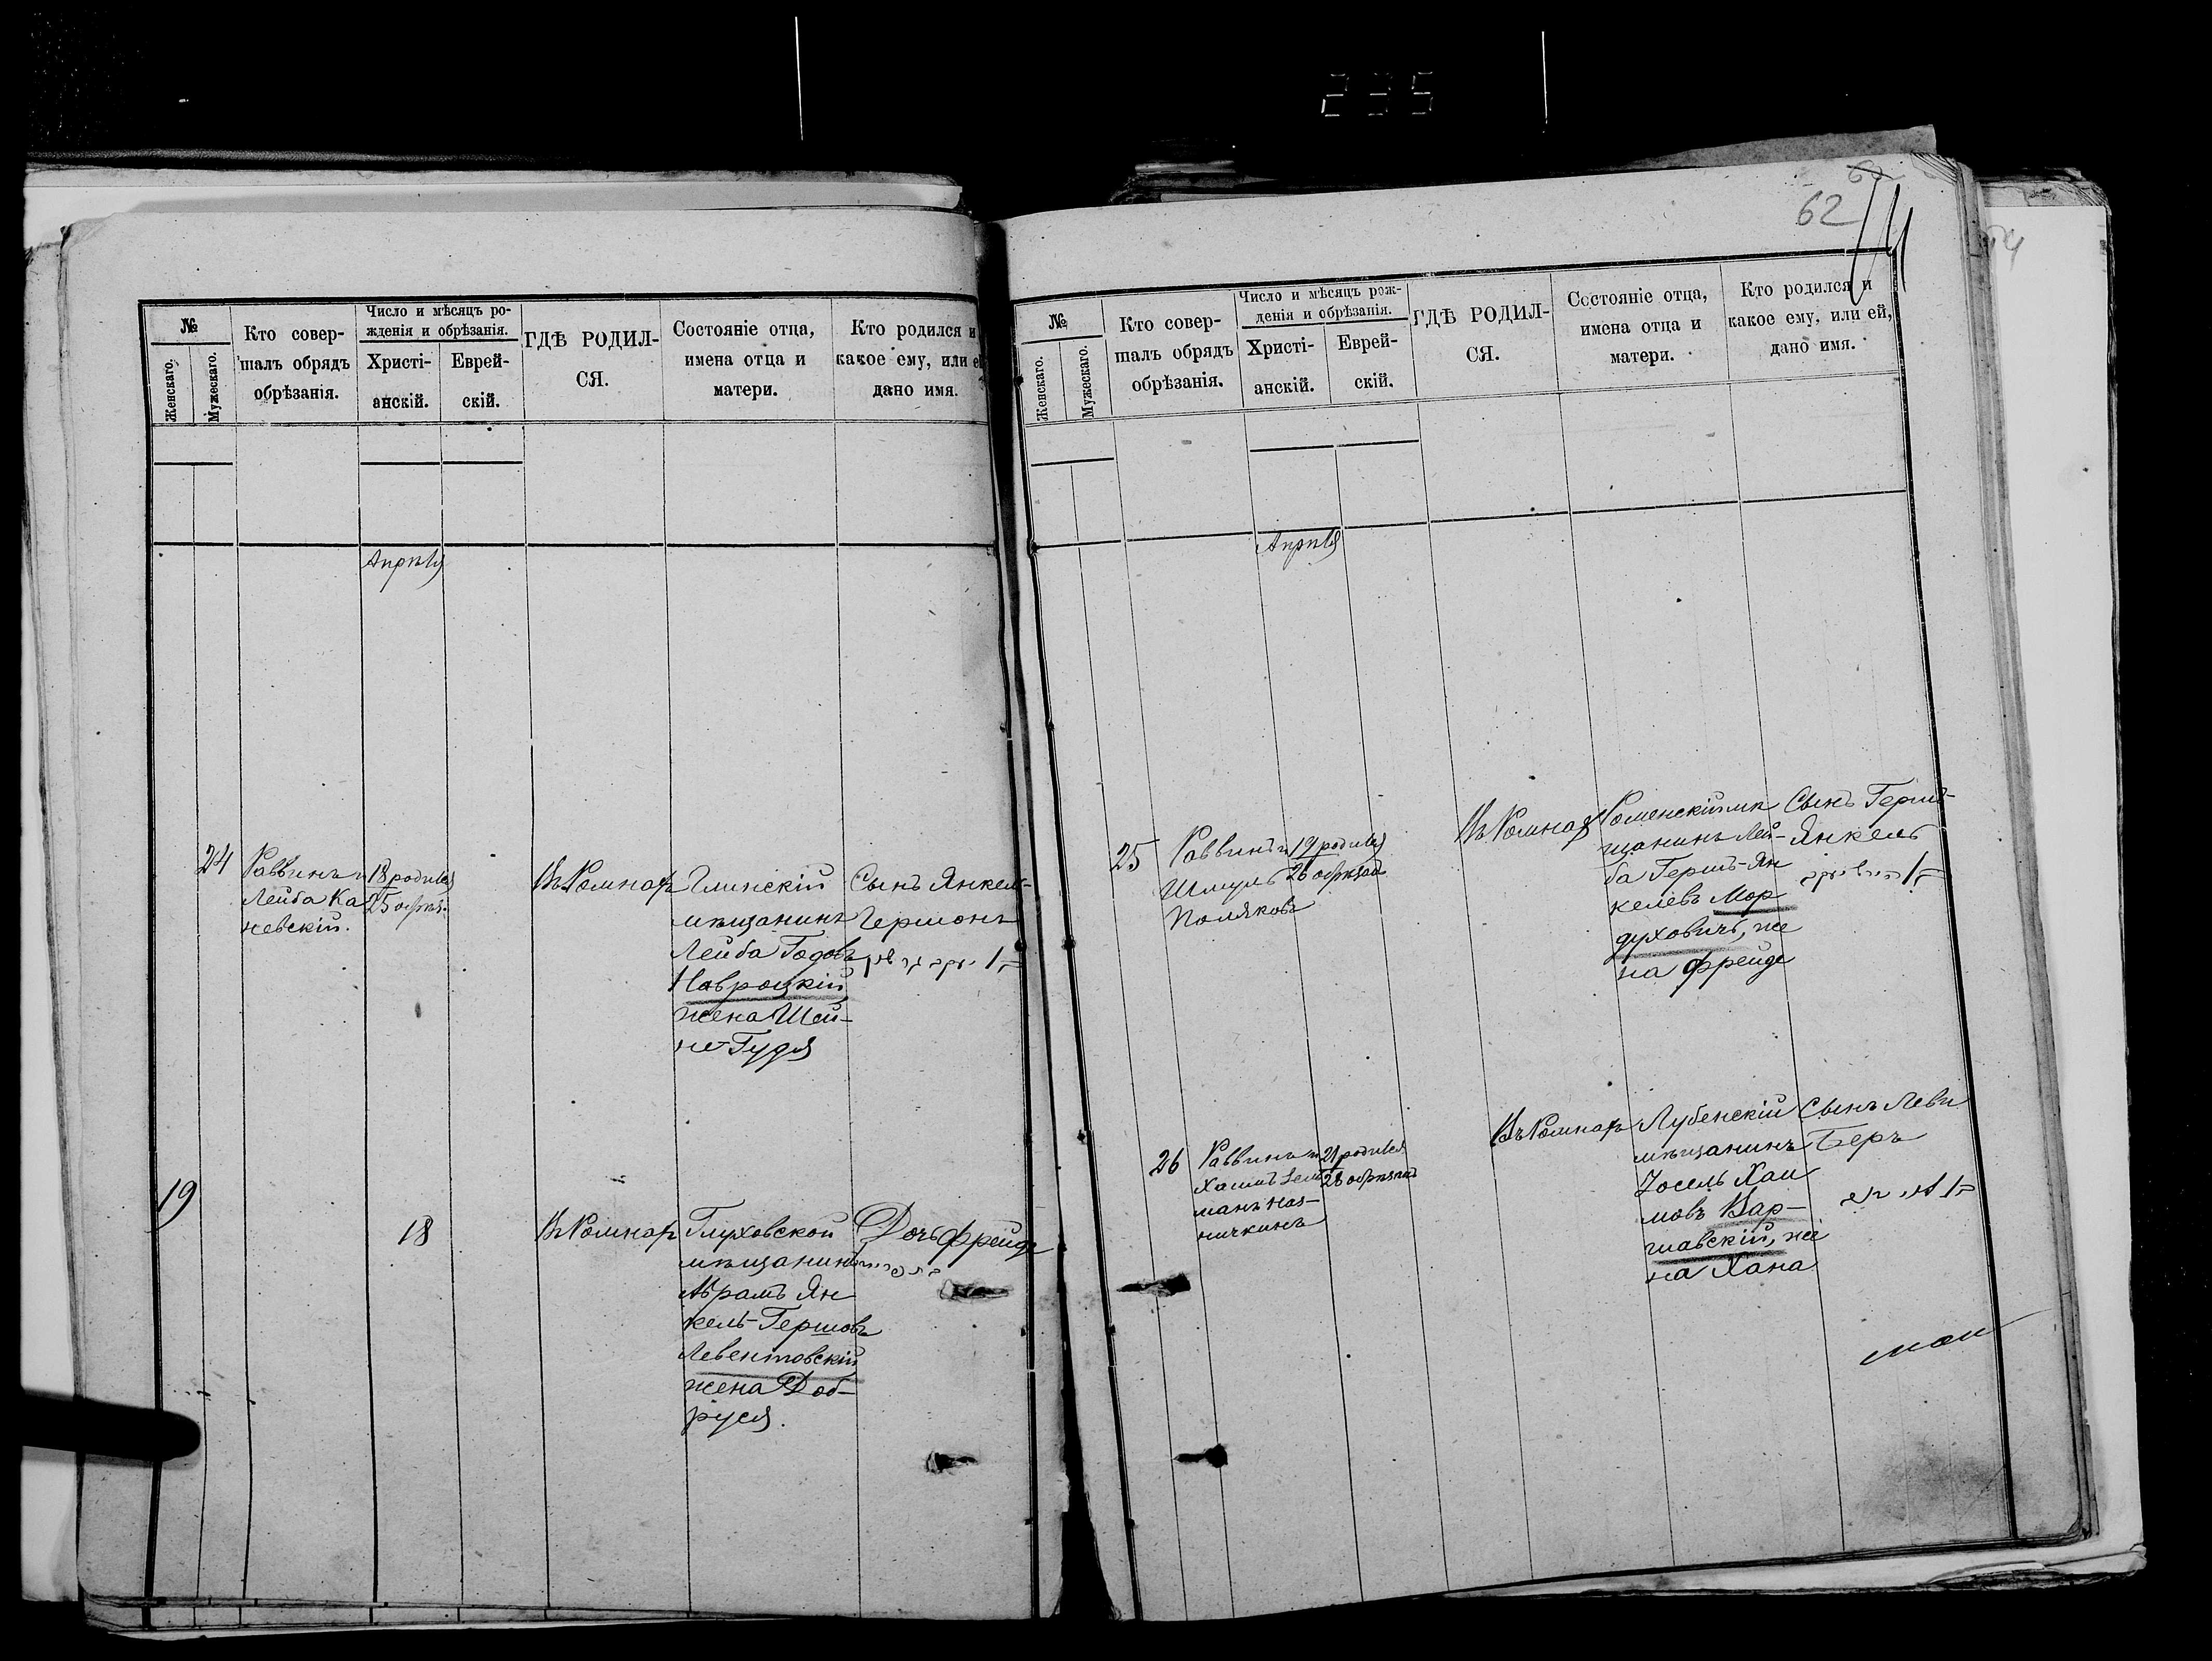 235
62
№
Женскаго.
Мужескаго.
Кто совер-
шалъ обрядъ
обрѣзанія.
Число и мѣсяцъ ро-
жденія и обрѣзанія.
Христі-
анскій.
Еврей-
скій.
ГДѢ РОДИЛ-
СЯ.
Состояніе отца,
имена отца и
матери.
Кто родился и
какое ему, или
дано имя.
Апрѣля
24
Раввинъ и
Лейба Ка
невскій.
18 родился
25 обрѣз.
Въ Ромнах
Глинскій
мѣщанинъ
Лейба Годовъ
Навроцкій
жена Шей-
не-Гудя
Сынъ Янкель-
Гершонъ
19
18
Въ Ромнах
Глуховской
мѣщанинъ
Абрамъ Ян
кель-Гершовъ
Левентовскій
жена Доб-
руся.
Дочь Фрейде
№
Женскаго.
Мужескаго.
Кто совер-
шалъ обрядъ
обрѣзанія.
Число и мѣсяцъ рож-
денія и обрѣзанія.
Христі-
анскій.
Еврей-
скій.
ГДѢ РОДИЛ-
СЯ.
Состояніе отца,
имена отца и
матери.
Кто родился и
какое ему, или ей,
дано имя.
Апрѣля
25
Раввинъ и
Шмуль
Поляковъ
19 родился
26 обрѣзанъ
Въ Ромнах
Роменскій мѣ
щанинъ Лей-
ба Герш-Ян
келевъ Мор
духовичъ, же
на Фрейде
Сынъ Герш-
Янкель
26
Раввинъ и
Хаимъ Зель
манъ
21 родился
28 обрѣзанъ
Въ Ромнах
Лубенскій
мѣщанинъ
Іосель Хаи
мовъ Вар-
шавскій, же
на Хана
Сынъ Леви
Беръ